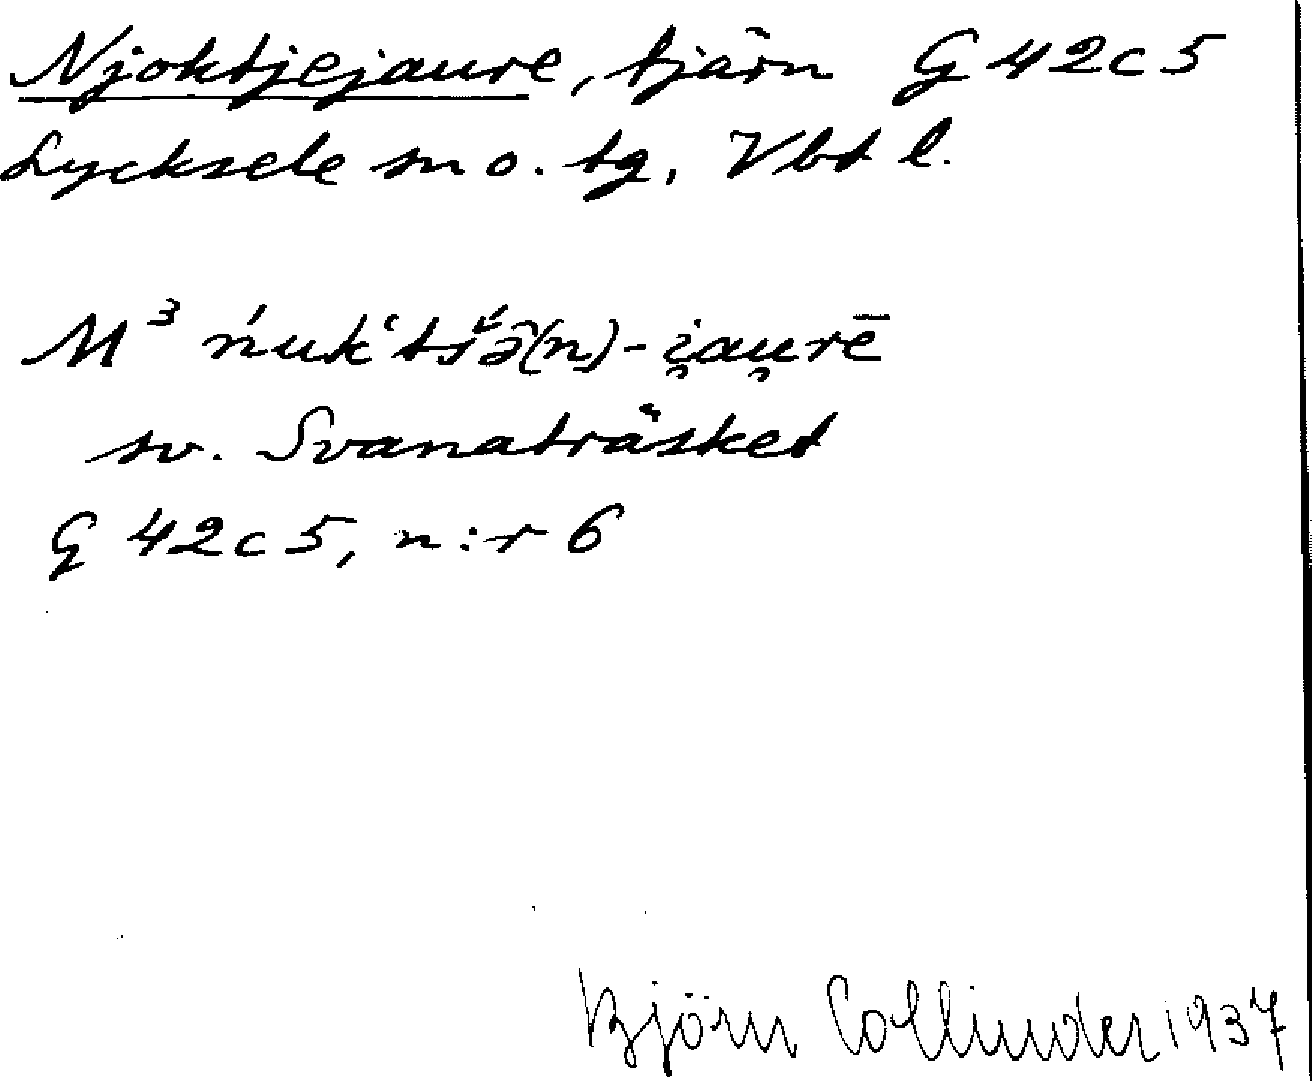 Njoktjejaure, tjärn G 42c5
Lycksele sn o. tg, Vbt l.
M³ ńukʻtš́ə̂(n)-i̯au̯rē
sv. Svanaträsket
G 42c5, n:r 6
Björn Collinder 1937